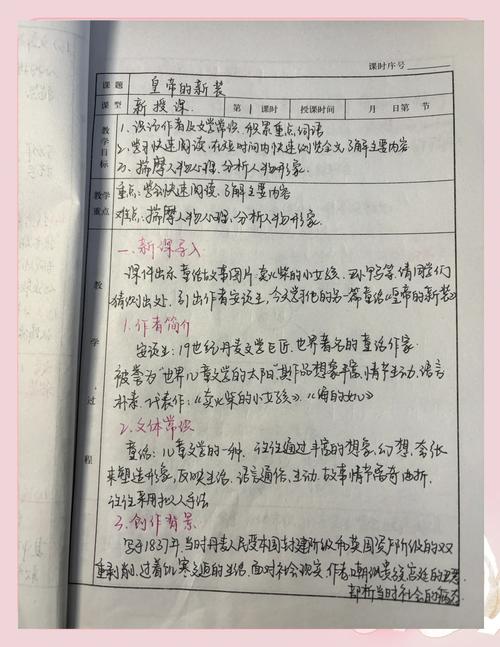 课时序号
课题 皇帝的新装
课型 新授课 第1课时 授课时间 月 日 第 节
教学目标
1. 识记作者及文学常识,积累重点词语
2. 学习快速阅读,在短时间内快速浏览全文,了解主要内容
3. 揣摩人物心理,分析人物形象.
教学重点
重点:学习快速阅读,了解主要内容
难点:揣摩人物心理,分析人物形象.
教学过程
一、新课导入
课件出示童话故事图片,卖火柴的小女孩、丑小鸭等,请同学们
猜测出处,引出作者安徒生,今天学习他的另一篇童话《皇帝的新装》
1. 作者简介
安徒生:19世纪丹麦文学巨匠,世界著名的童话作家.
被誉为"世界儿童文学的太阳",其作品想象丰富、情节生动、语言
朴素.代表作:《卖火柴的小女孩》、《海的女儿》
2. 文体常识
童话:儿童文学的一种,往往通过丰富的想象、幻想、夸张
来塑造形象,反映生活.语言通俗、生动,故事情节离奇曲折,
往往采用拟人手法
3. 创作背景
写于1837年,当时丹麦人民受本国封建阶级和英国资产阶级的双
重剥削,过着饥寒交迫的生活,面对社会现实,作者嘲讽贵族宫廷的丑恶
剖析当时社会的病态